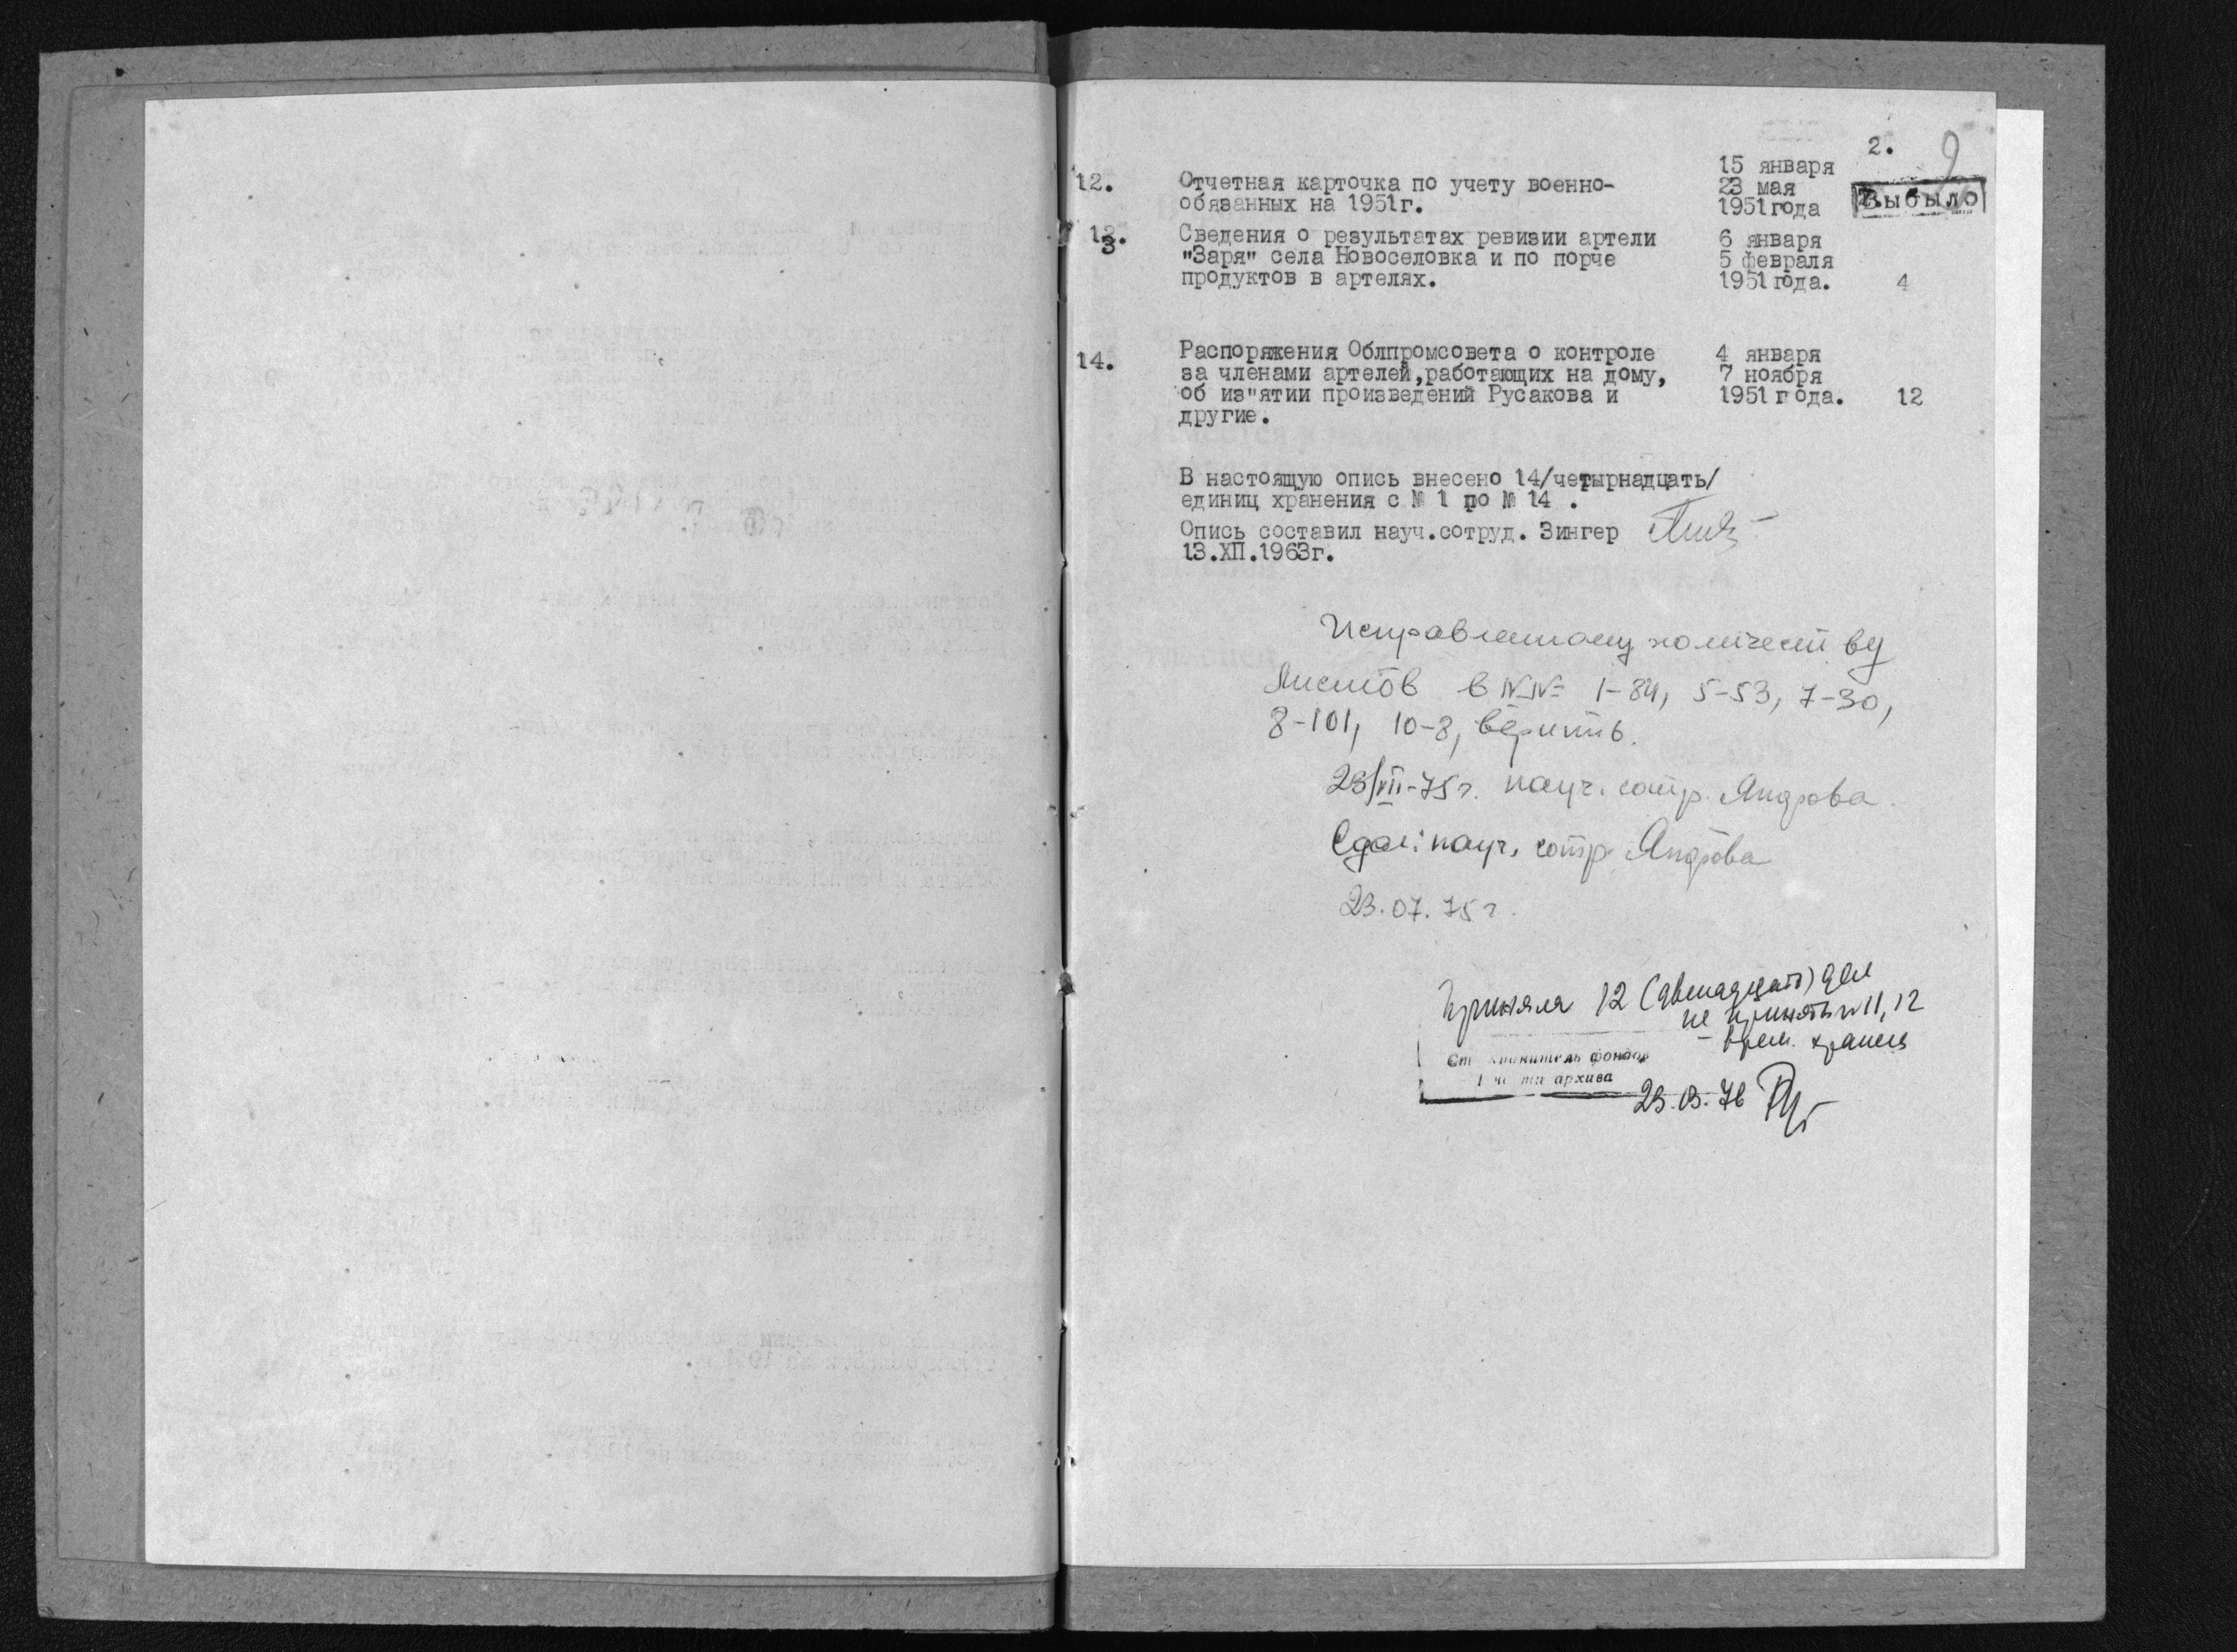 2.
9
12. Отчетная карточка по учету военно- 15 января
обязанных на 1951г. 23 мая
1951года
Выбыло
13. Сведения о результатах ревизии артели 6 января
"Заря" села Новоселовка и по порче 5 февраля
продуктов в артелях. 1951года. 4
14. Распоряжения Облпромсовета о контроле 4 января
за членами артелей,работающих на дому, 7 ноября
об из"ятии произведений Русакова и 1951года. 12
другие.
В настоящую опись внесено 14/четырнадцать/
единиц хранения с № 1 по № 14 .
Опись составил науч.сотруд. Зингер
13.XII.1963г.
Исправленному количеству
листов в №№ 1-84, 5-53, 7-30,
8-101, 10-8, верить.
23/VII-75г. науч. сотр.
Сдал: науч. сотр.
23.07.75г.
Приняла 12 (двенадцать) дел
не приняты № 11, 12
- врем. хранен
Ст. хранитель фондов
архива